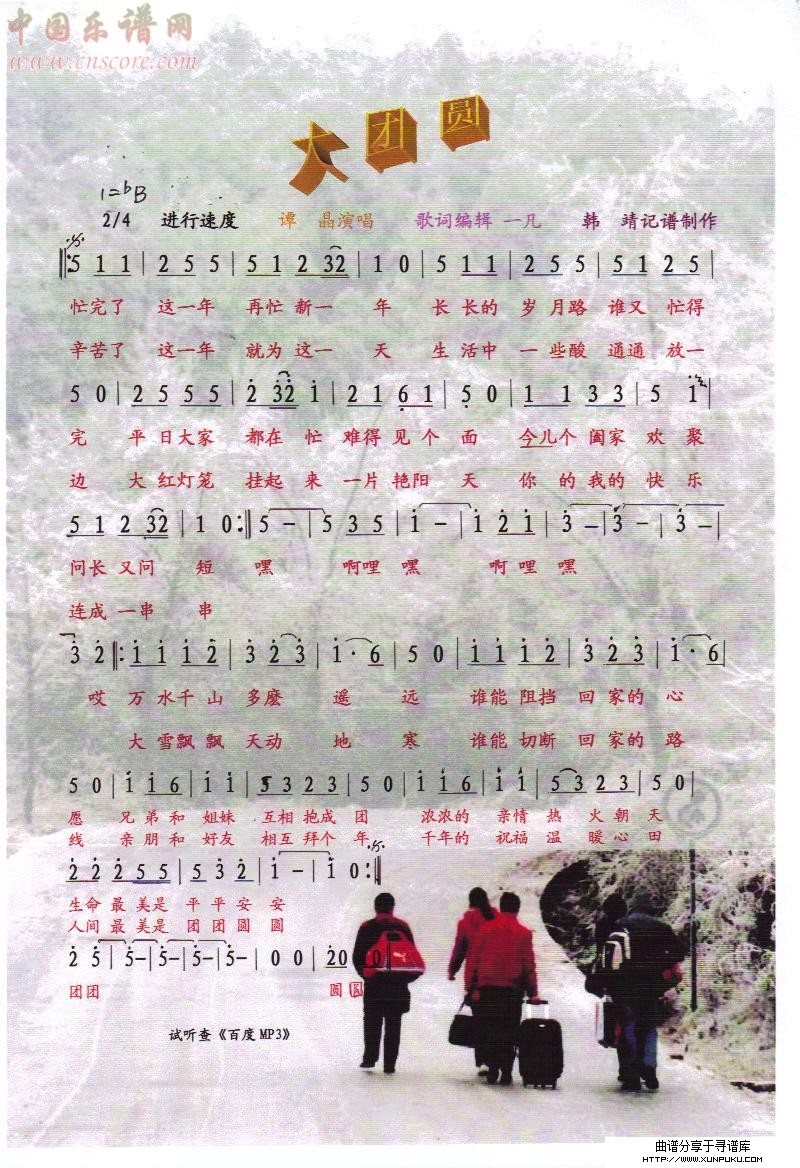 中国乐谱网
www.cnscore.com
大团圆
1=bB
2/4 进行速度 谭 晶演唱 歌词编辑 一凡 韩 靖记谱制作
5 1 1 | 2 5 5 | 5 1 2 32 | 1 0 | 5 1 1 | 2 5 5 | 5 1 2 5 |
忙完了 这一年 再忙 新一 年 长 长的 岁 月路 谁又 忙得
辛苦了 这一年 就为 这一 天 生 活中 一 些酸 通通 放一
5 0 | 2 5 5 5 | 2 32 1 | 2 1 6 1 | 5 0 | 1 1 3 3 | 5 1 |
完 平 日大家 都在 忙 难得 见 个 面 今儿个 阖家 欢 聚
边 大 红灯笼 挂起 来 一片 艳阳 天 你 的 我的 快 乐
5 1 2 32 | 1 0 :|| 5 – | 5 3 5 | 1 – | 1 2 1 | 3 – | 3 – | 3 – |
问长 又问 短 嘿 啊哩 嘿 啊 哩 嘿
连成 一串 串
3 2 ||: 1 1 1 2 | 3 2 3 | 1 · 6 | 5 0 | 1 1 1 2 | 3 2 3 | 1 · 6 |
哎 万 水千 山 多麽 遥 远 谁能 阻挡 回 家的 心
大 雪飘飘 天动 地 寒 谁能 切断 回 家的 路
5 0 | 1 1 6 | 1 1 | 5 3 2 3 | 5 0 | 1 1 6 | 1 1 | 5 3 2 3 | 5 0 |
愿 兄 弟 和 姐妹 互相 抱成 团 浓浓的 亲情 热 火 朝 天
线 亲 朋 和 好友 相互 拜个 年 千年的 祝福 温 暖 心 田
2 2 2 5 5 | 5 3 2 | 1 – | 1 0 :||
生命 最 美是 平 平 安 安
人间 最 美是 团 团 圆 圆
2 5 | 5 – | 5 – | 5 – | 5 – | 0 0 | 2 0 | 0 0 |
团团 圆 圆
试听查《百度 MP3》
曲谱分享于寻谱库
HTTP://WWW.XUNPUKU.COM